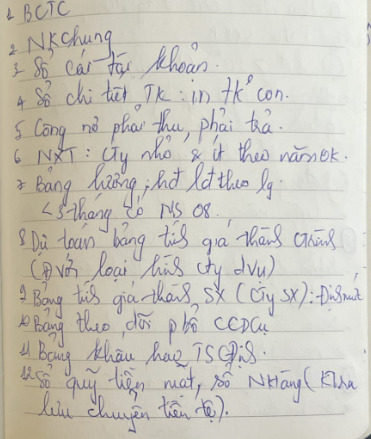 1 BCTC
2 NKChung
3 Sổ cái tài khoản.
4 Sổ chi tiết TK: in TK con.
5 Công nợ phải thu, phải trả.
6 NXT: Cty nhỏ & ít theo năm ok.
7 Bảng lương, hđ lđ theo lg.
<3 tháng có NS 08.
8 Dự toán bảng tính giá thành
(Đ với loại hình cty dvụ)
9 Bảng tính giá thành SX (Cty SX): Định mức
10 Bảng theo dõi phổ CCDCụ
11 Bảng khấu hao TSCĐịnh.
12 Sổ quỹ tiền mặt, sổ NHàng (
lưu chuyển tiền tệ).